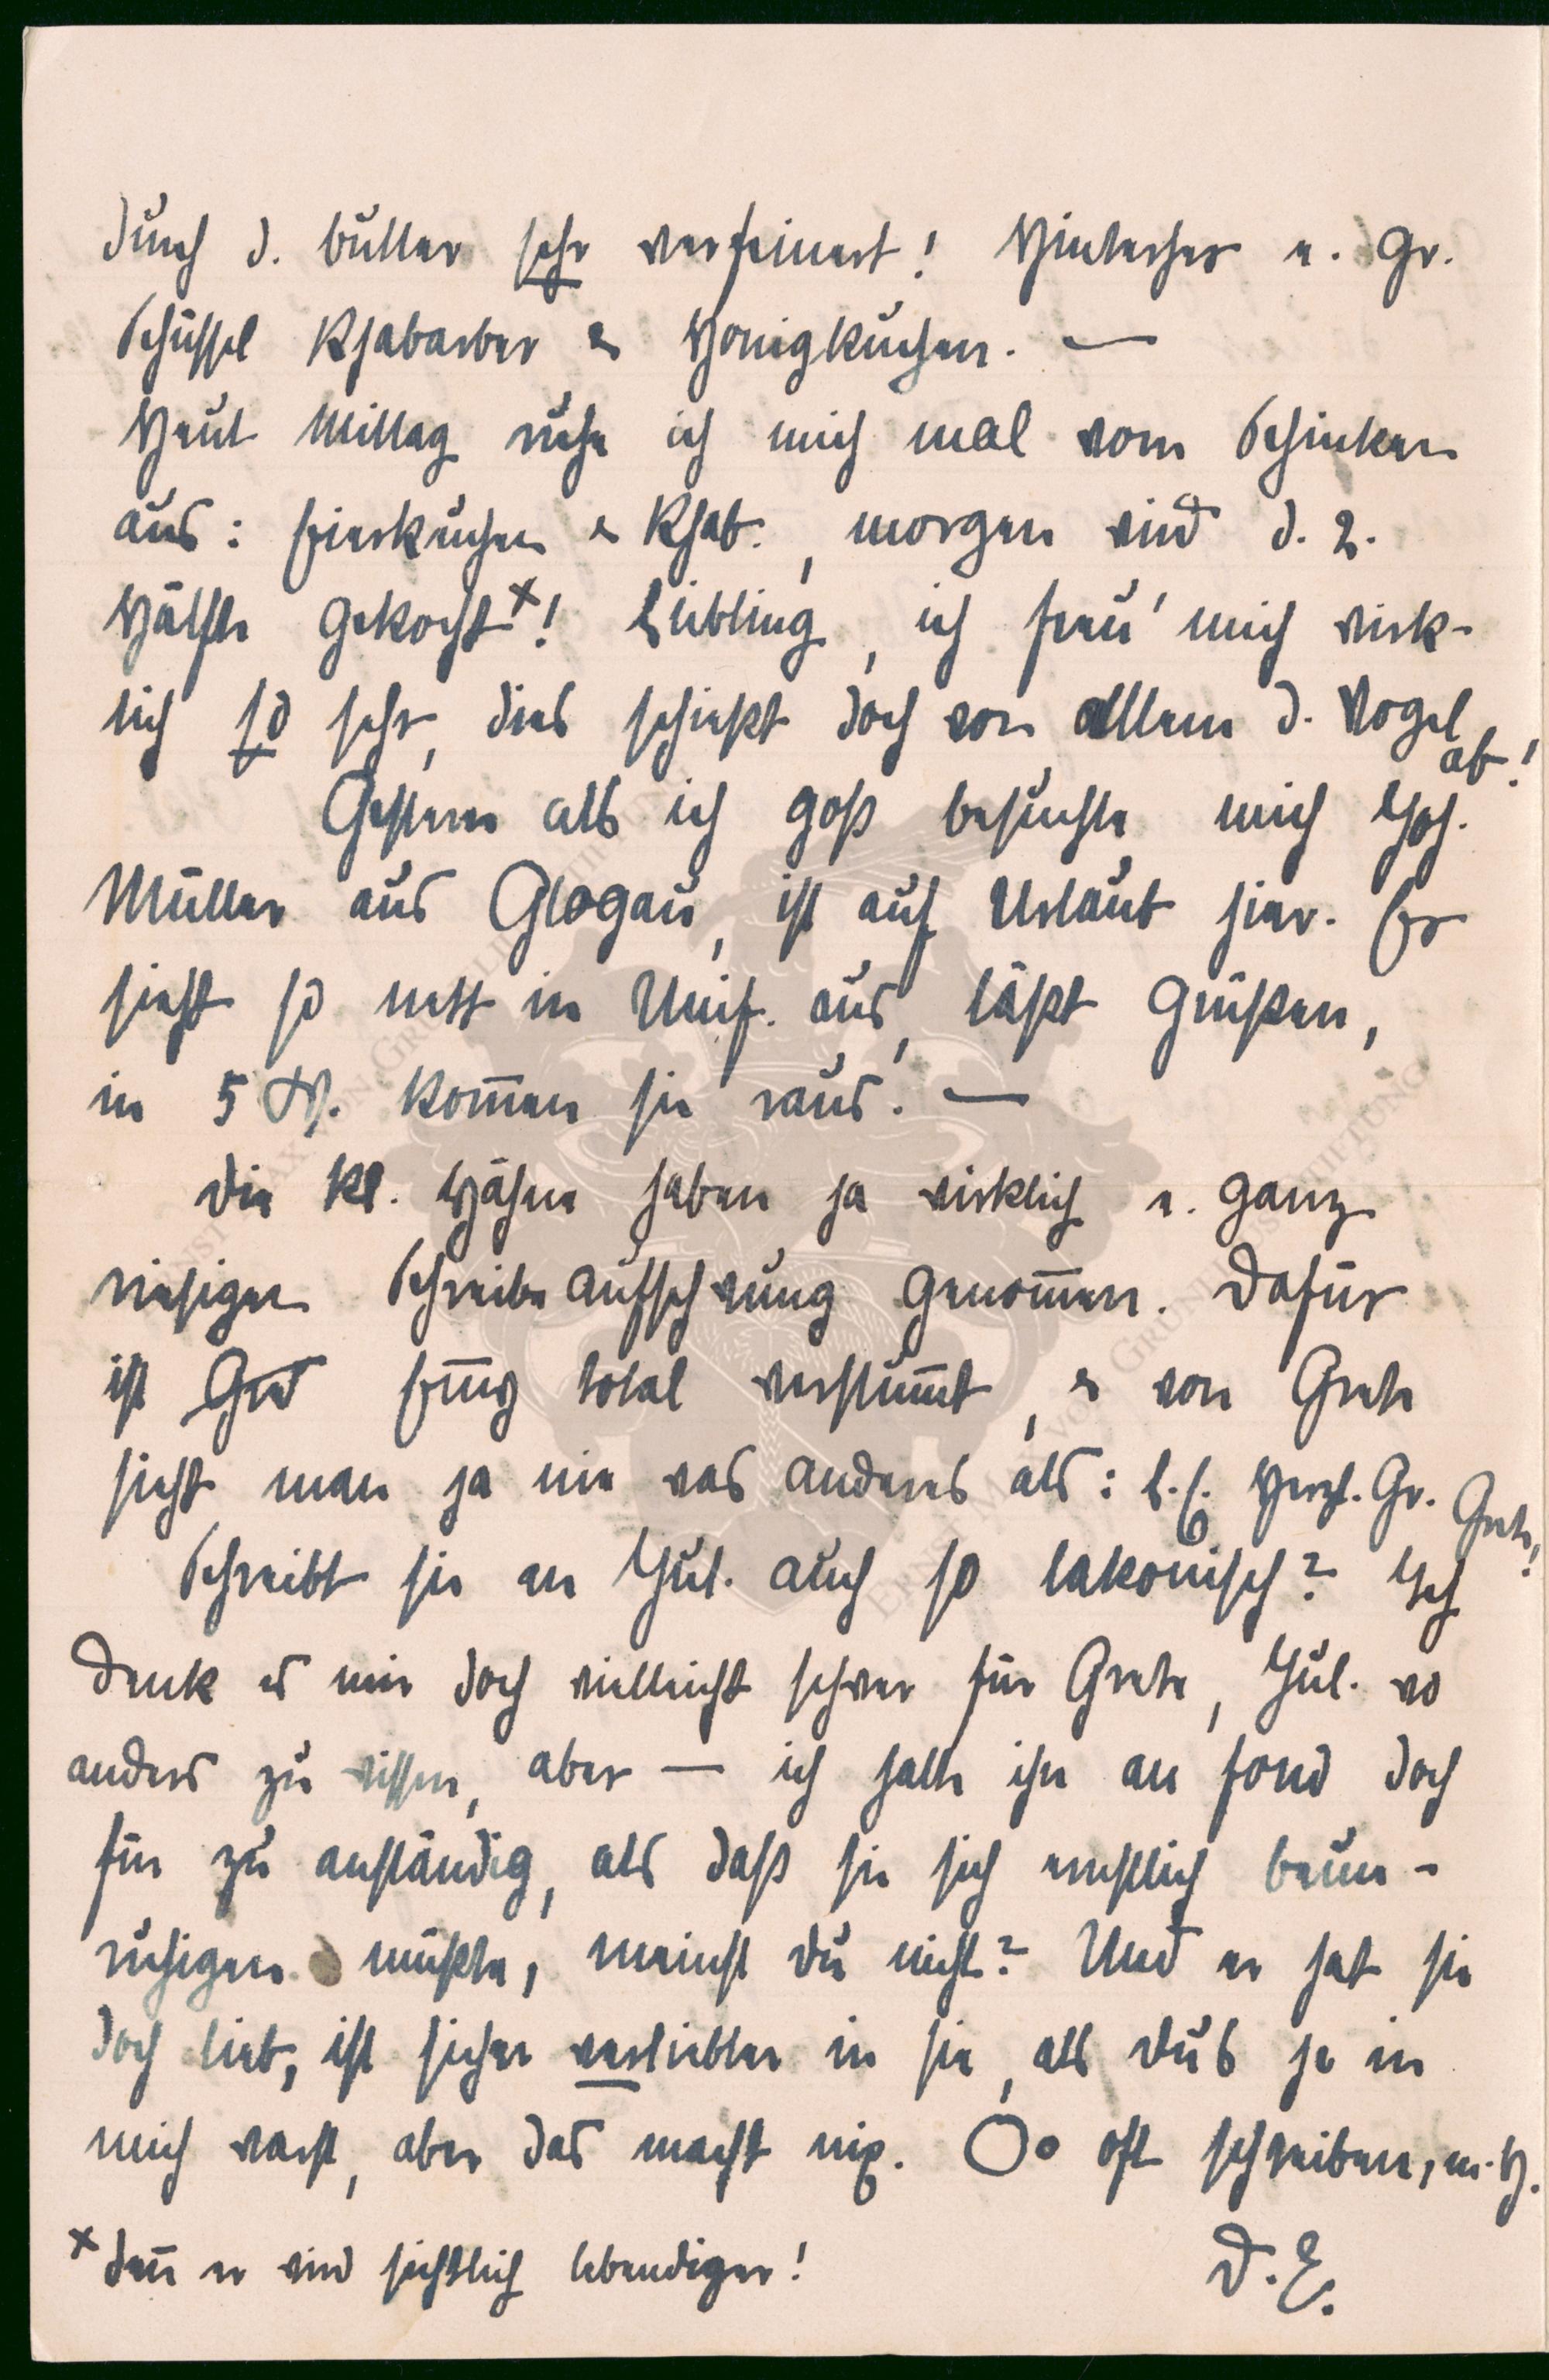 durch d. Butter sehr verfeinert! Hinterher e. gr.
Schüssel Rhabarber & Honigkuchen. —
Heut Mittag ruhe ich mich mal vom Schinken
aus: Eierkuchen & Rhab., morgen wird d. 2.
Hälfte gekocht x! Liebling, ich freu' mich wirk-
lich so sehr, dies schießt doch von allem d. Vogel
ab!
Gestern als ich goß besuchte mich Joh.
Müller aus Glogau, ist auf Urlaub hier. Er
sieht so nett in Unif. aus, läßt grüßen,
in 5 W. kom̄en sie raus. —
Die kl. Hähne haben ja wirklich e. ganz
riesigen Schreibeaufschwung genom̄en. Dafür
ist total verstum̄t, & von Grete
sieht man ja nie was anderes als: Herzl. Gr. Grete!
Schreibt sie an Jul. auch so lakonisch? Ich
denk es mir doch vielleicht schwer für Grete, Jul. wo
anders zu wissen, aber — ich halte ihn au fond doch
für zu anständig, als daß sie sich ernstlich beun-
ruhigen müßte, meinst Du nicht? Und er hat sie
doch lieb, ist sicher verliebter in sie, als Du's je in
mich warst, aber das macht nix. Oo oft schreiben, m. H.
x den̄ er wird sichtlich lebendiger!
D. E.